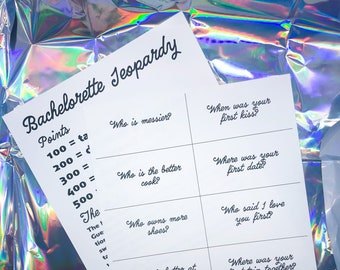 Bachelorette Jeopardy
Points
100 = ta
200 =
300 =
400 =
500
The
Gue
Who is messier?
When was your
first kiss?
Who is the better
cook?
Where was your
first date?
Who owns more
shoes?
Who said I love
you first?
at
Where was your
together?